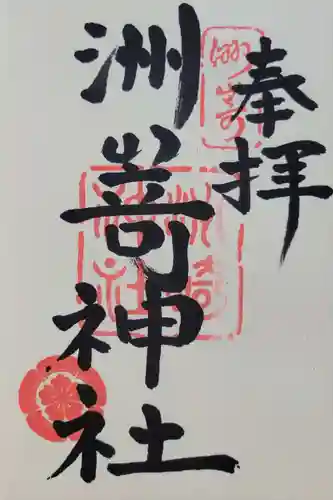 奉拝
洲嵜神社